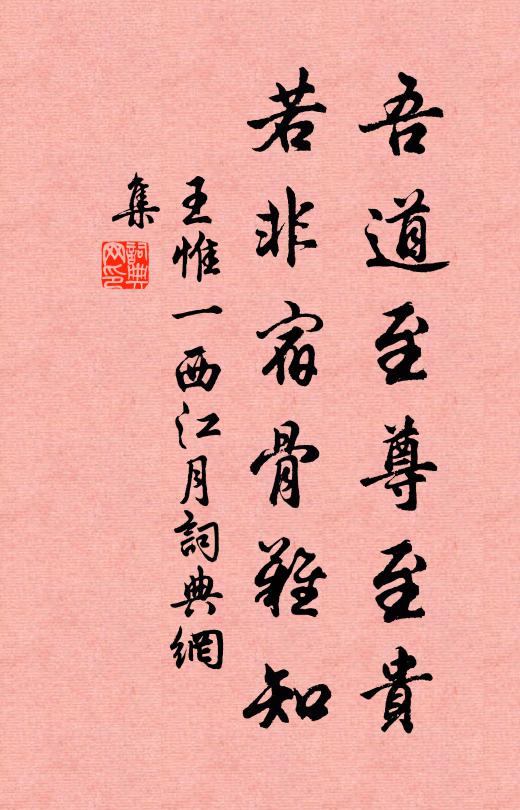 吾道至尊至貴
若非宿骨難知
王惟一西江月詞典網
集
詞典網印